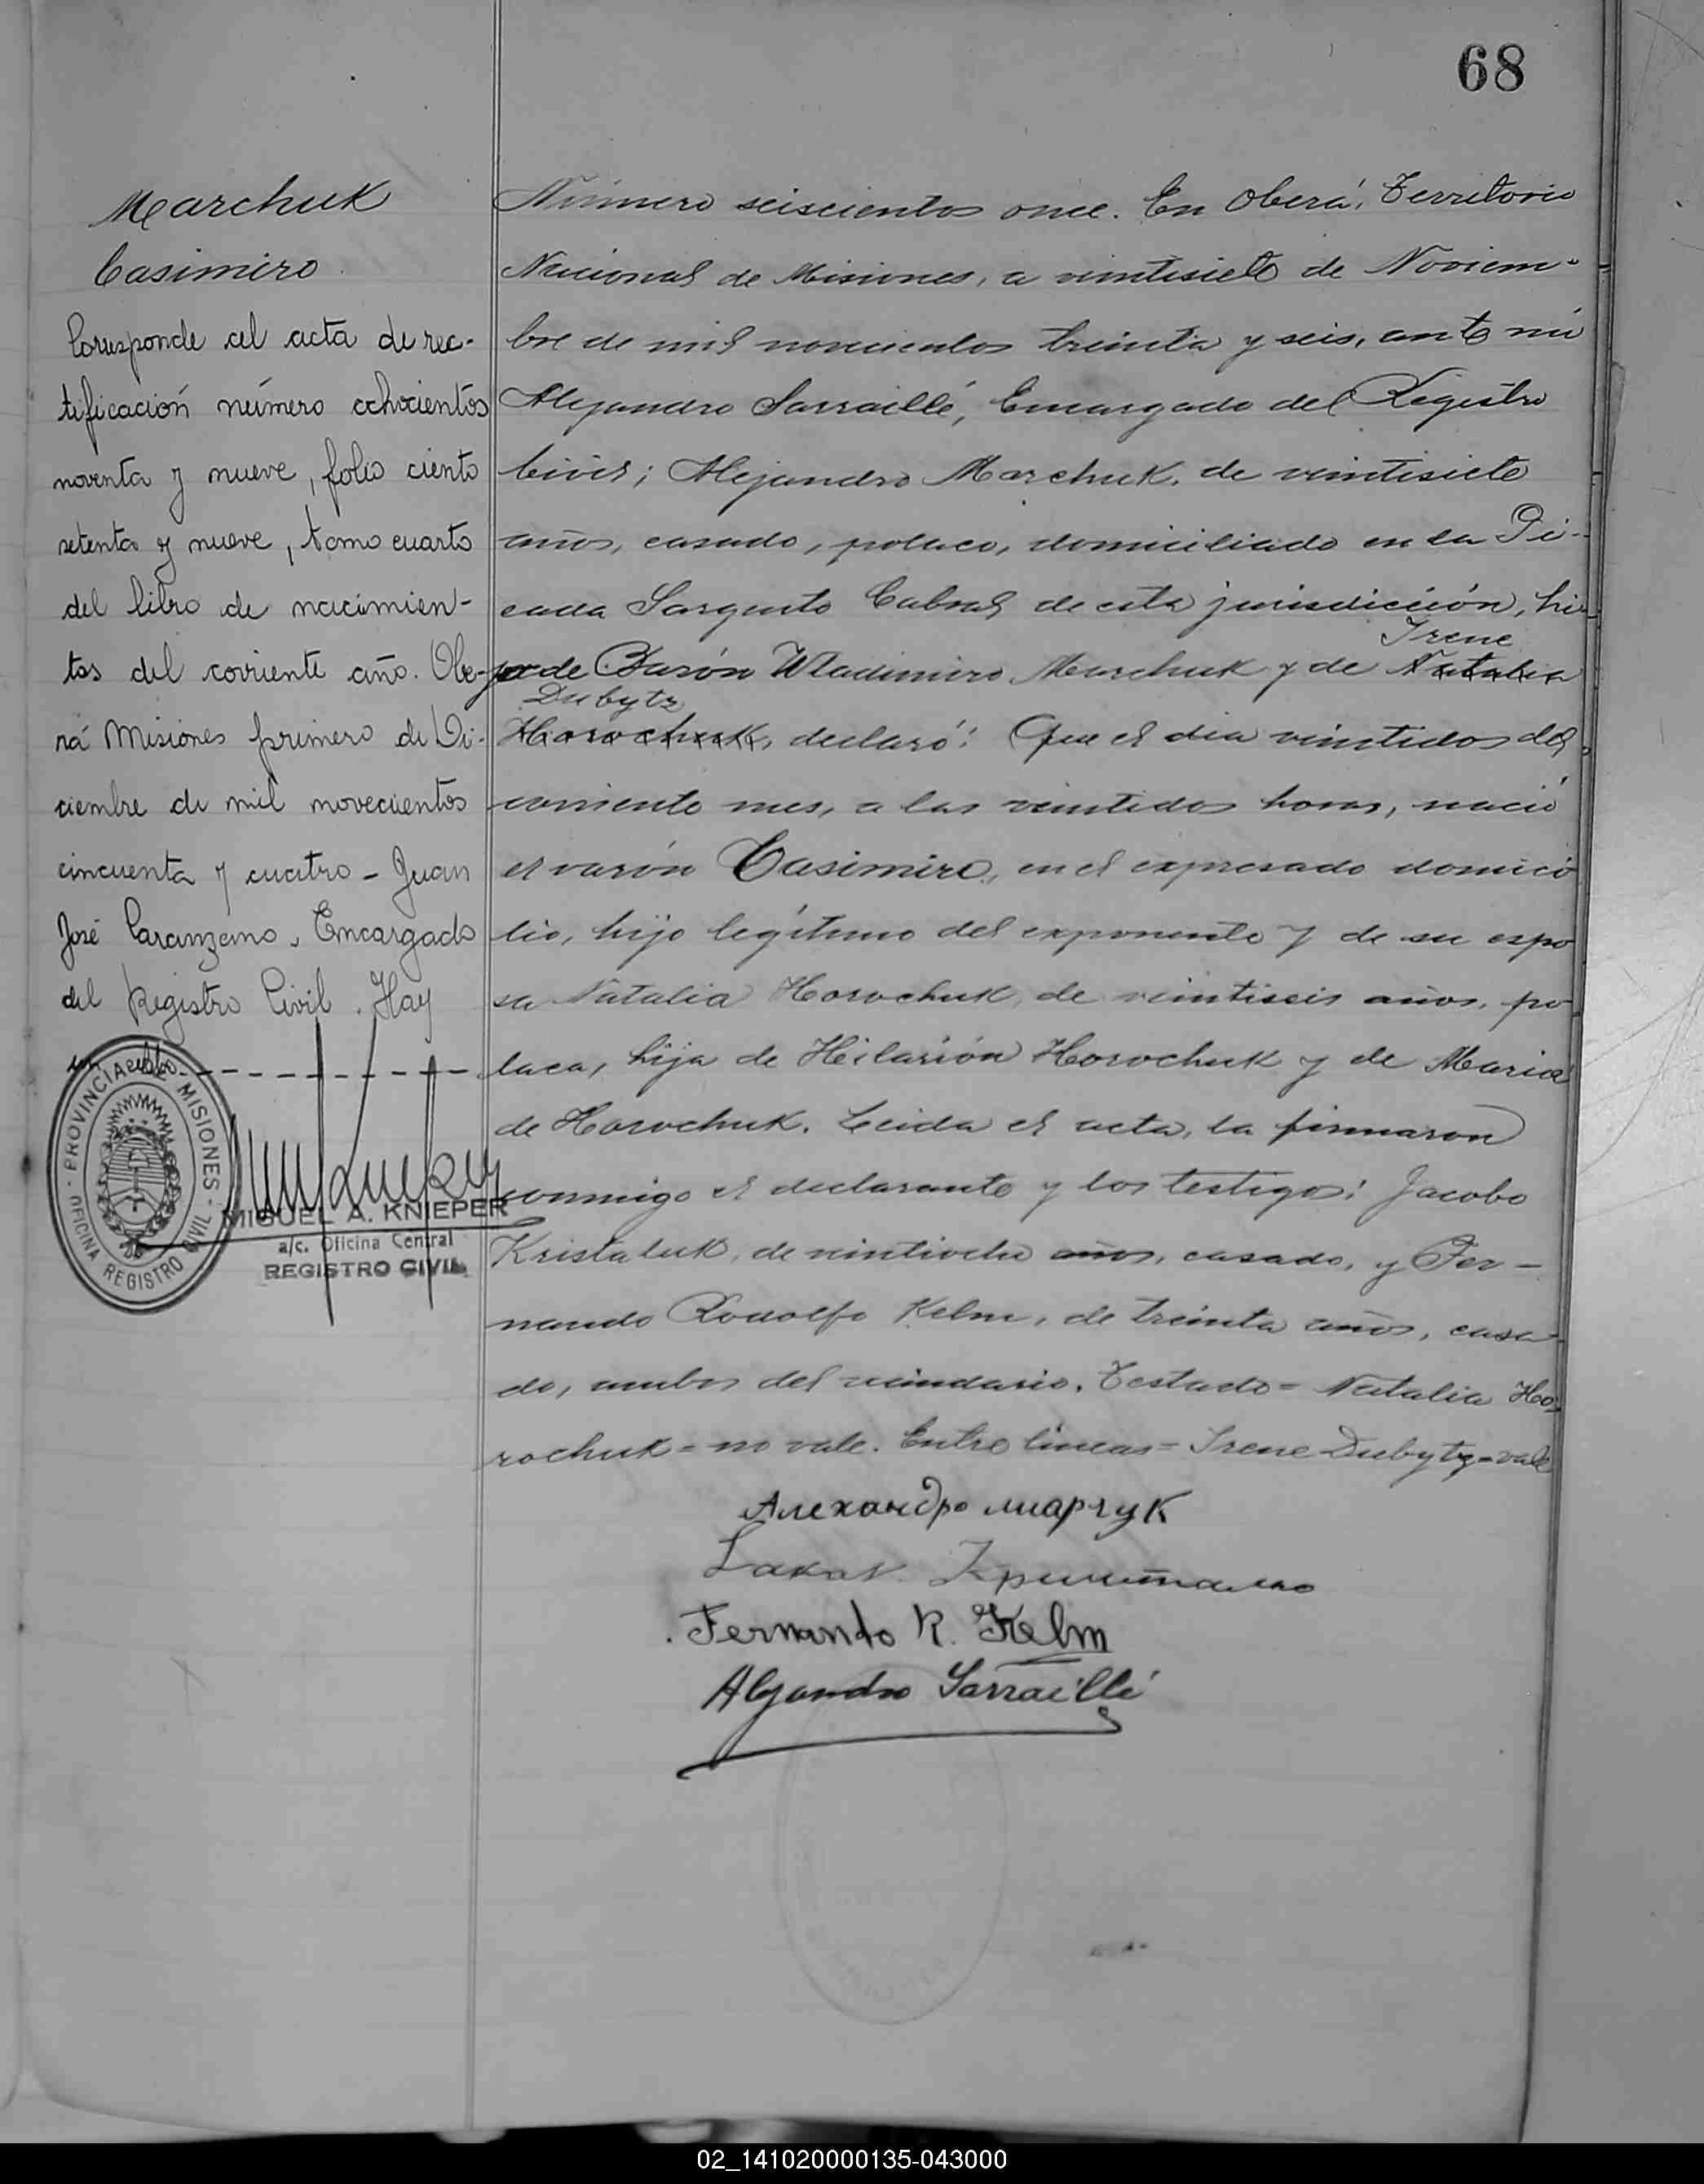 68
Marchuk
Casimiro
Corresponde al acta de rec-
tificación número ochocientos
noventa y nueve, folio ciento
setenta y nueve, tomo cuarto
del libro de nacimien-
tos del corriente año. Obe-
rá Misiones primero de Di-
ciembre de mil novecientos
cincuenta y cuatro - Juan
José Caranzano, Encargado
del Registro Civil. Hay
un sello
PROVINCIA DE MISIONES - OFICINA REGISTRO CIVIL -
MIGUEL A. KNIEPER
a/c. Oficina Central
REGISTRO CIVIL
Número seiscientos once. En Oberá, Territorio
Nacional de Misiones, a veintisiete de Noviem-
bre de mil novecientos treinta y seis, ante mí
Alejandro Sarraillé, Encargado del Registro
Civil; Alejandro Marchuk, de veintisiete
años, casado, polaco, domiciliado en la Pi-
cada Sargento Cabral de esta jurisdicción, hi-
Irene
jo de Barón Wladimiro Marchuk y de Natalia
Dubytz
Horochuk, declaró: Que el día veintidos del
corriente mes, a las veintidos horas, nació
el varón Casimiro, en el expresado domici-
lio, hijo legítimo del exponente y de su espo
sa Natalia Horochuk, de veintiseis años, po
laca, hija de Hilarión Horochuk y de Maria
de Horochuk. Leida el acta, la firmaron
conmigo el declarante y los testigos: Jacobo
Kristaluk, de veintiocho años, casado, y Fer-
nando Rodolfo Kelm, de treinta años, casa-
do, ambos del vecindario. Testado = Natalia Ho-
rochuk = no vale. Entre líneas = Irene Dubytz = vale
Алехандро Марчук
Fernando R. Kelm
Alejandro Sarraillé
02_141020000135-043000